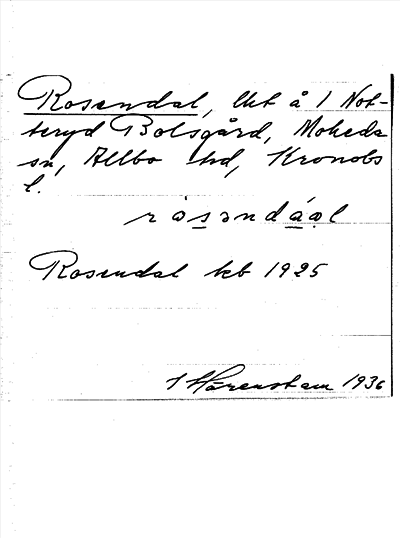 Rosendal, lht å 1 Not-
teryd Bolsgård, Moheda
sn, Allbo hd, Kronobs
l.
rosəndáəl
Rosendal kb 1925
Härenstam 1936